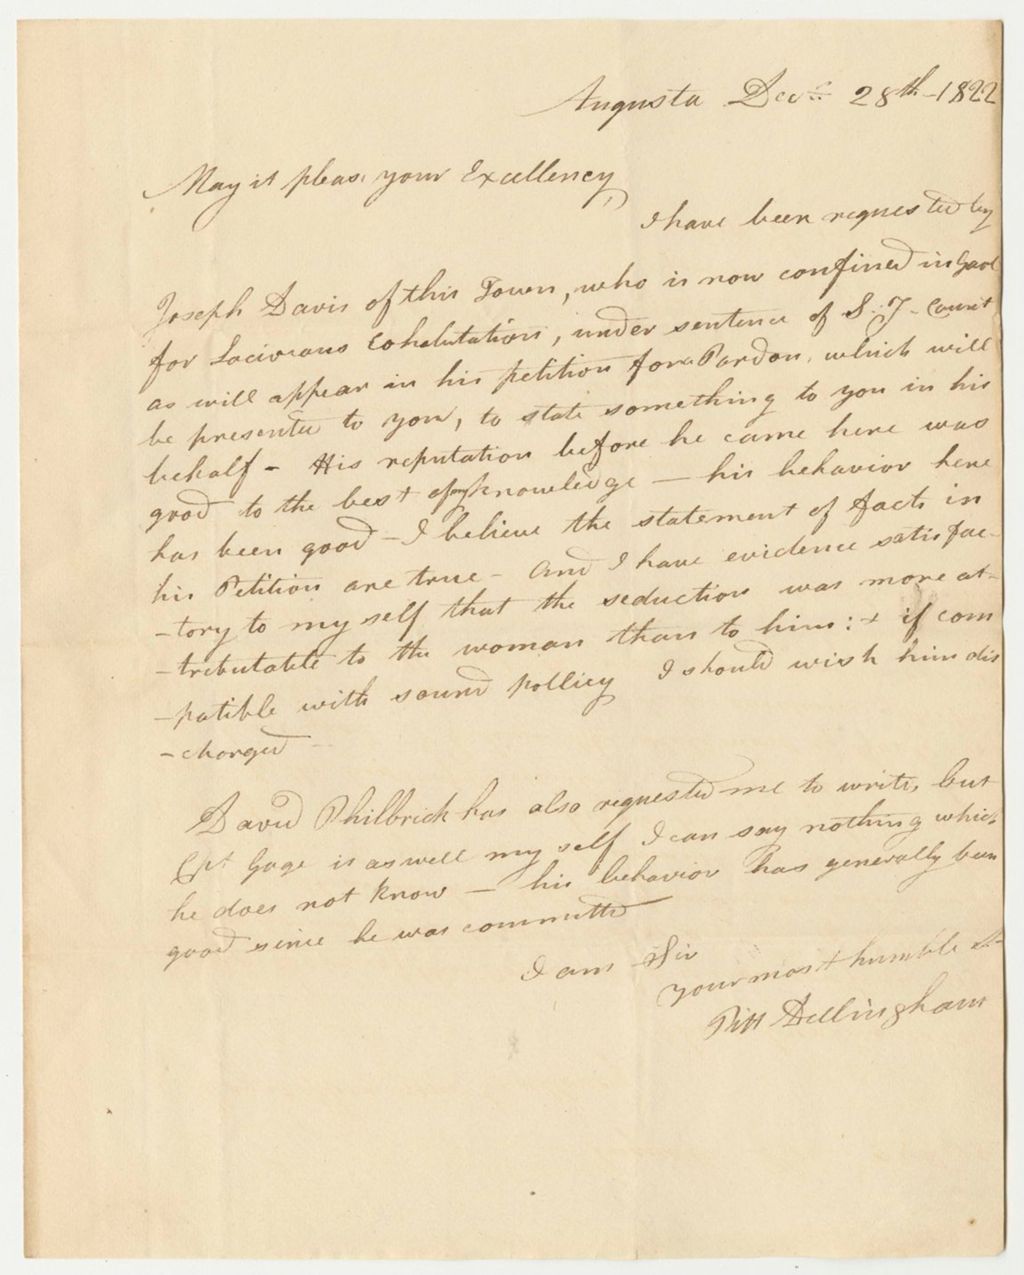 Augusta Decr 28th - 1822
May it pleas your Excellency,
I have been requested by
Joseph Davis of this Town, who is now confined in Gaol
for Lacivious Cohabitation, under sentence of S. J. Court
as will appear in his petition for a Pardon, which will
be presented to you, to state something to you in his
behalf - His reputation before he came here was
good to the best of my knowledge - his behavior here
has been good - I believe the statement of facts in
his Petition are true - And I have evidence satisfac-
-tory to my self that the seduction was more at-
-tributable to the woman than to him: + if com
-patible with sound pollicy I should wish him dis
-charged -
David Philbrick has also requested me to write, but
Cpt Gage is as well my self I can say nothing which
he does not know - his behavior has generally been
good since he was committed
I am Sir
your most humble St
Pitt Dillingham